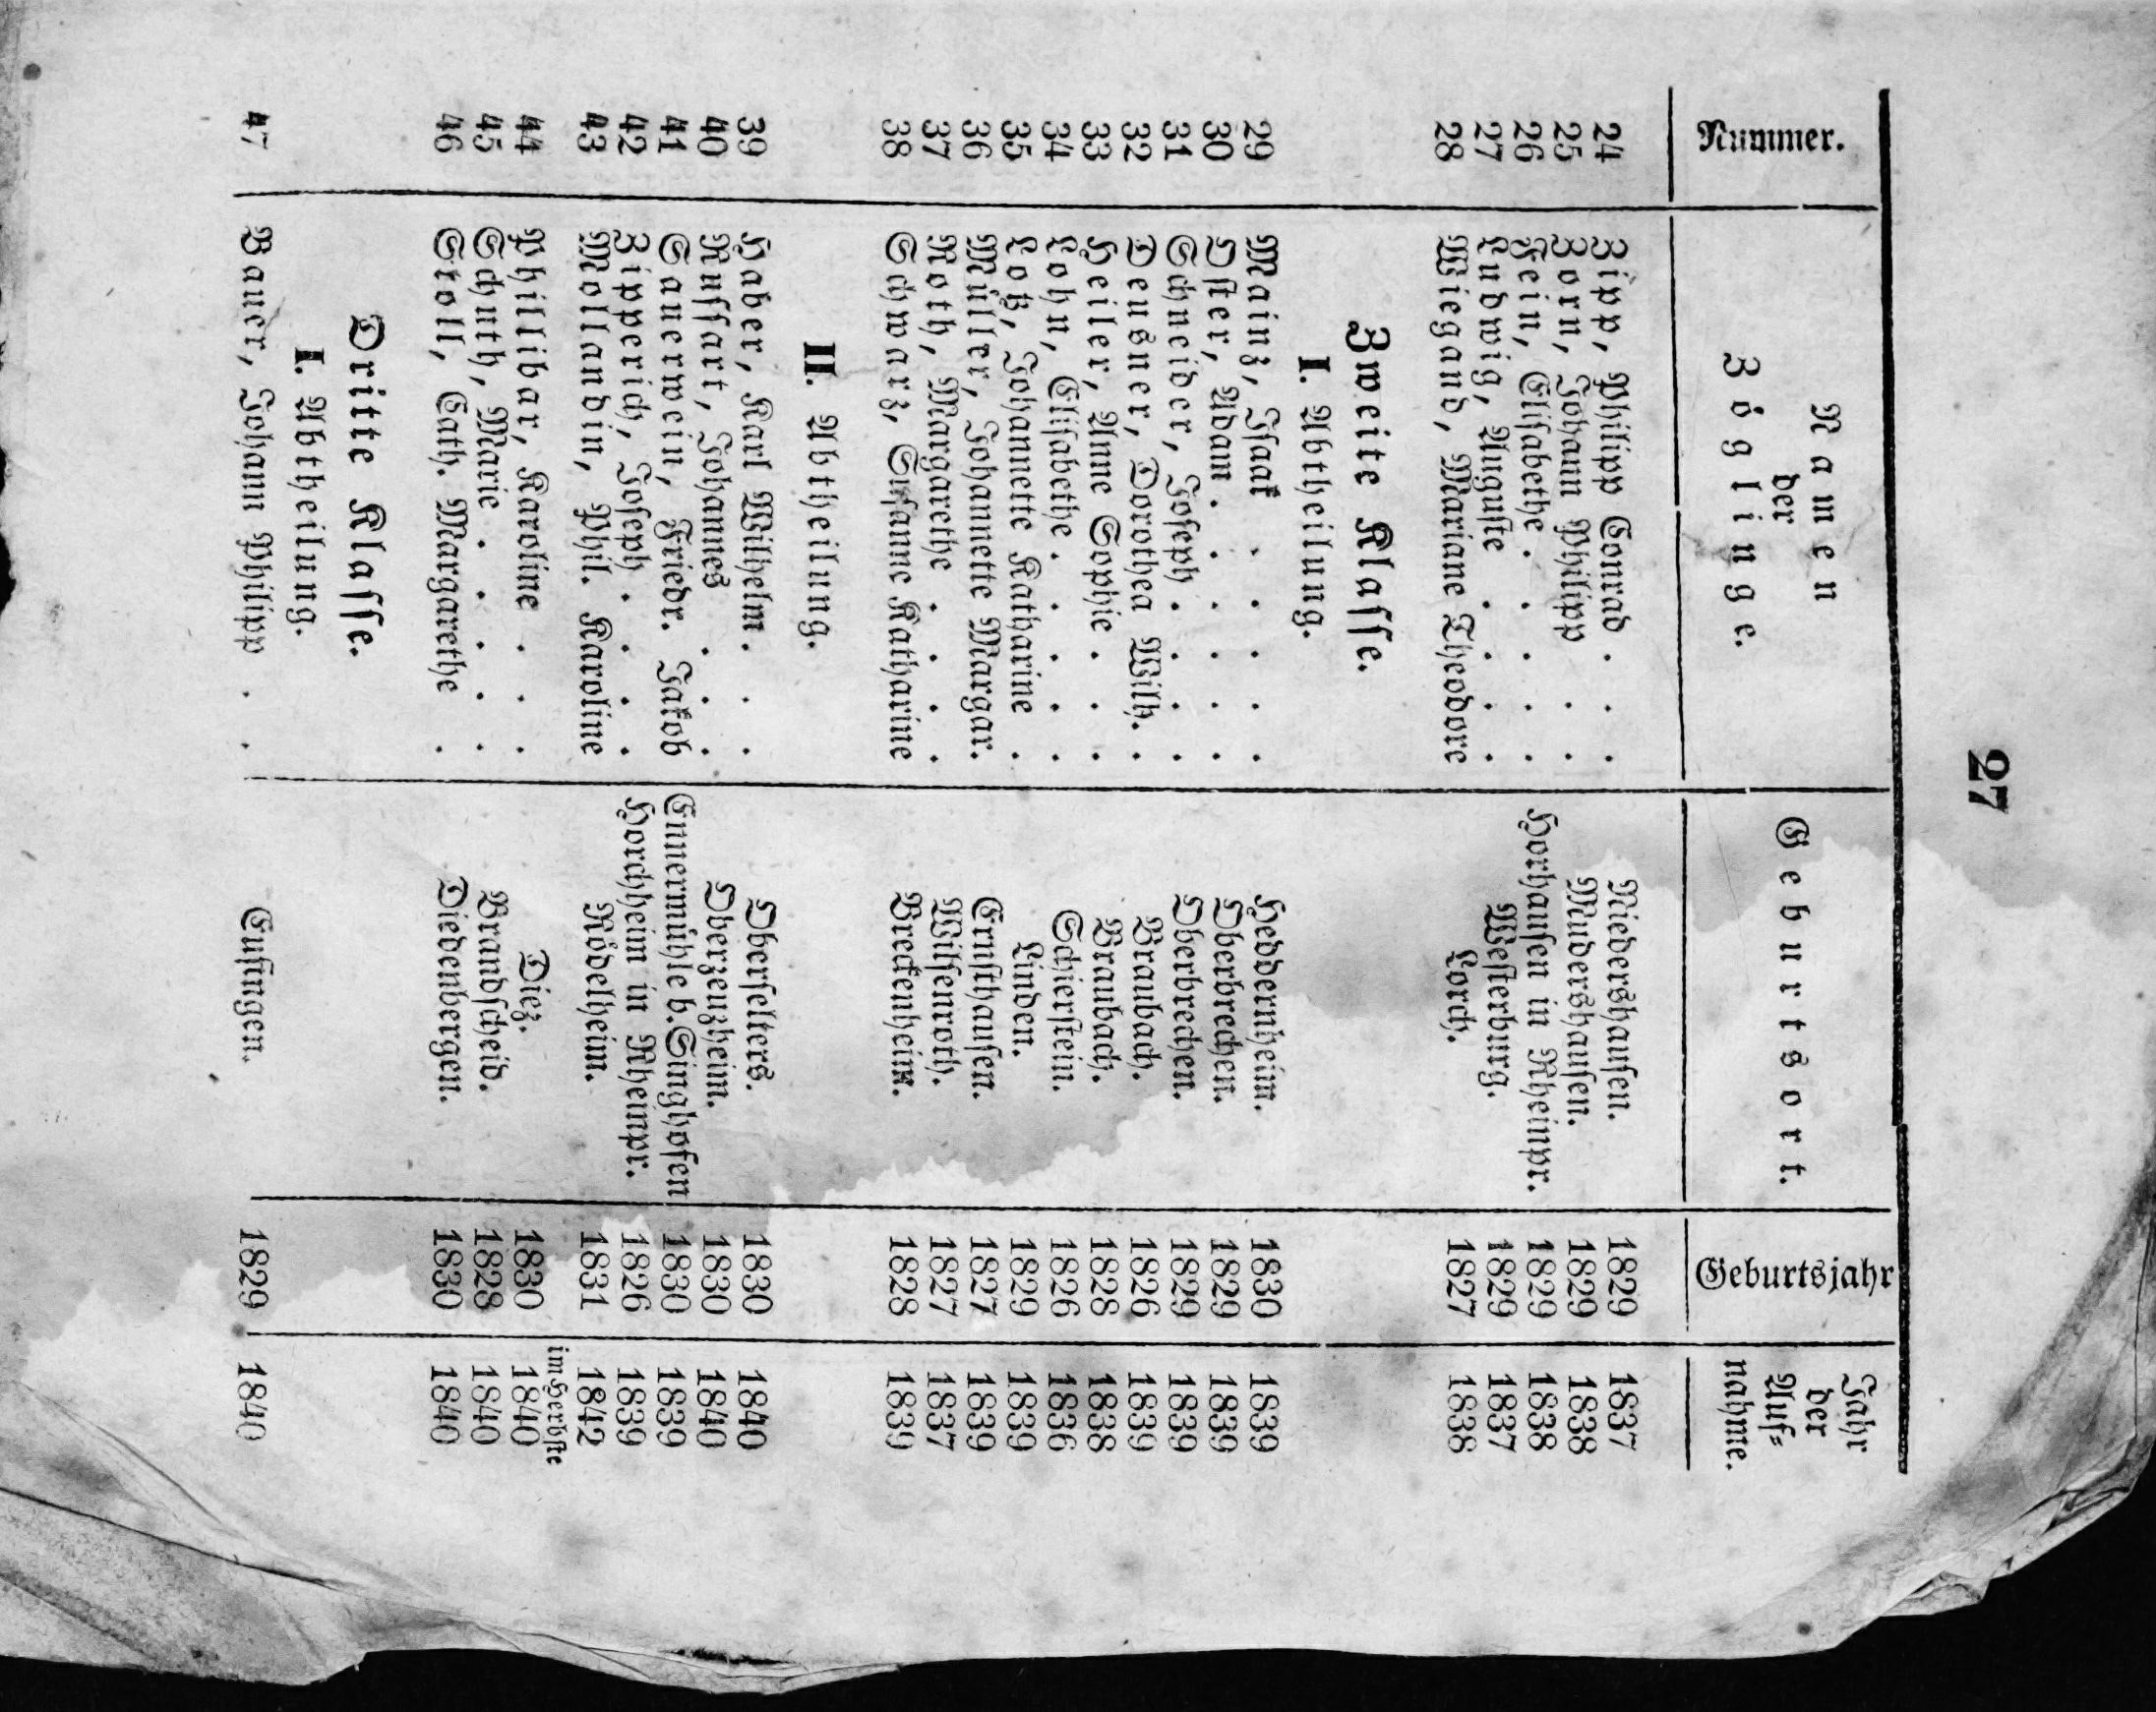 27
Nummer. Namen der Zöglinge. Geburtsort. Geburtsjahr Jahr der Auf⸗ nahme.
24 Zipp, Philipp Conrad . . . Niedershausen. 1829 1837
25 Zorn, Johann Philipp . . Mudershausen. 1829 1838
26 Fein, Elisabethe . . . . . Horhausen in Rheinpr. 1829 1838
27 Ludwig, Auguste . . . . Westerburg. 1829 1837
28 Wiegand, Mariane Theodore Lorch. 1827 1838
Zweite Klasse.
I. Abtheilung.
29 Mainz, Isaak . . . . . Heddernheim. 1830 1839
30 Oster, Adam . . . . . . Oberbrechen. 1829 1839
31 Schneider, Joseph . . . . Oberbrechen. 1829 1839
32 Deusner, Dorothea Wilh. . Braubach. 1826 1839
33 Heiler, Anne Sophie . . . Braubach. 1828 1838
34 Lohn, Elisabethe . . . . . Schierstein. 1826 1836
35 Lotz, Johannette Katharine . Linden. 1829 1839
36 Müller, Johannette Margar. Ernsthausen. 1827 1839
37 Roth, Margarethe . . . . Wilsenroth. 1827 1837
38 Schwarz, Susanne Katharine Breckenheim. 1828 1839
II. Abtheilung.
39 Haber, Karl Wilhelm . . . Oberselters. 1830 1840
40 Russart, Johannes . . . Oberzeuzheim. 1830 1840
41 Sauerwein, Friedr. Jakob Ennermühle b. Singhofen 1830 1839
42 Zipperich, Joseph . . . . Horchheim in Rheinpr. 1826 1839
43 Mollandin, Phil. Karoline Rödelheim. 1831 1842
im Herbste
44 Phillibar, Karoline . . . Diez. 1830 1840
45 Schuth, Marie . . . . . Brandscheid. 1828 1840
46 Stoll, Cath. Margarethe . Diedenbergen. 1830 1840
Dritte Klasse.
I. Abtheilung.
47 Bauer, Johann Philipp . . Eufingen. 1829 1840